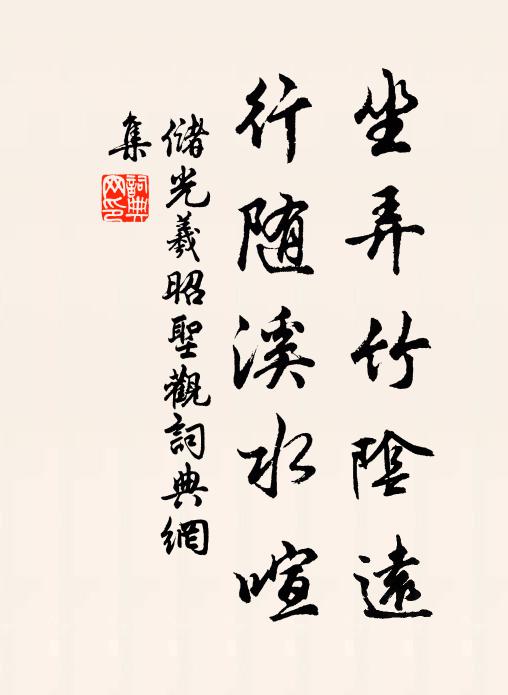 坐弄竹陰遠
行隨溪水喧
儲光羲昭聖觀詞典網
集
詞典網印